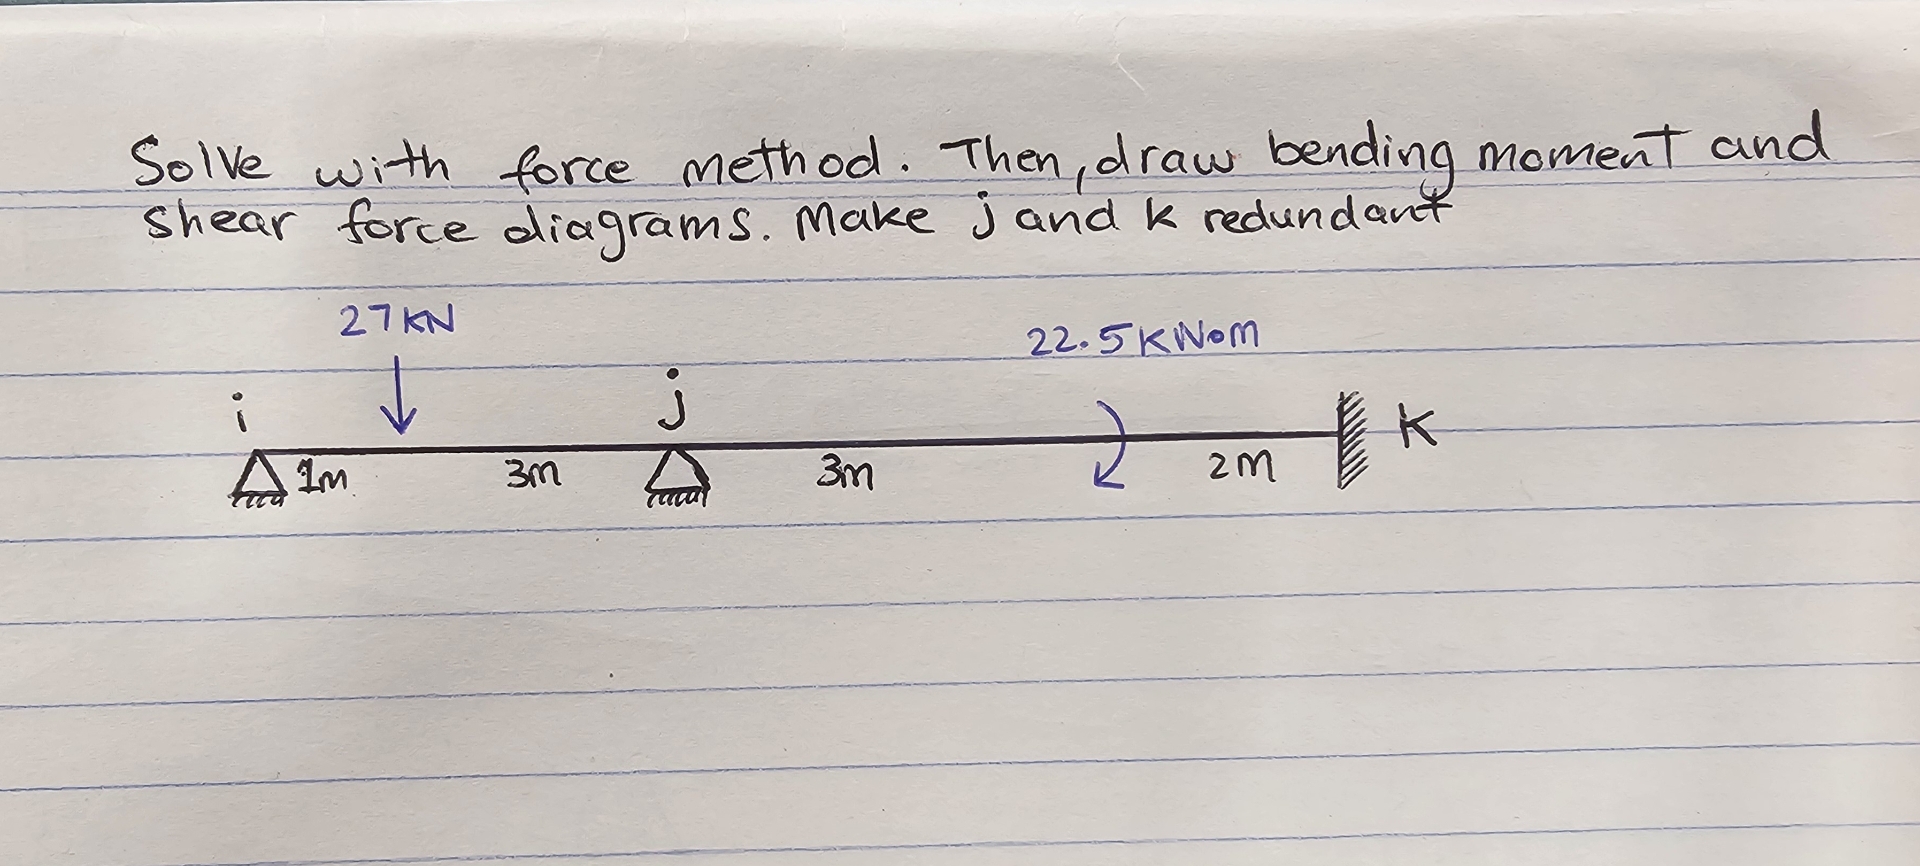 Solve with force method. Then, draw bending moment and
shear force diagrams. Make j and k redundant
27KN
22.5KN•m
i
j
K
1m
3m
3m
2m